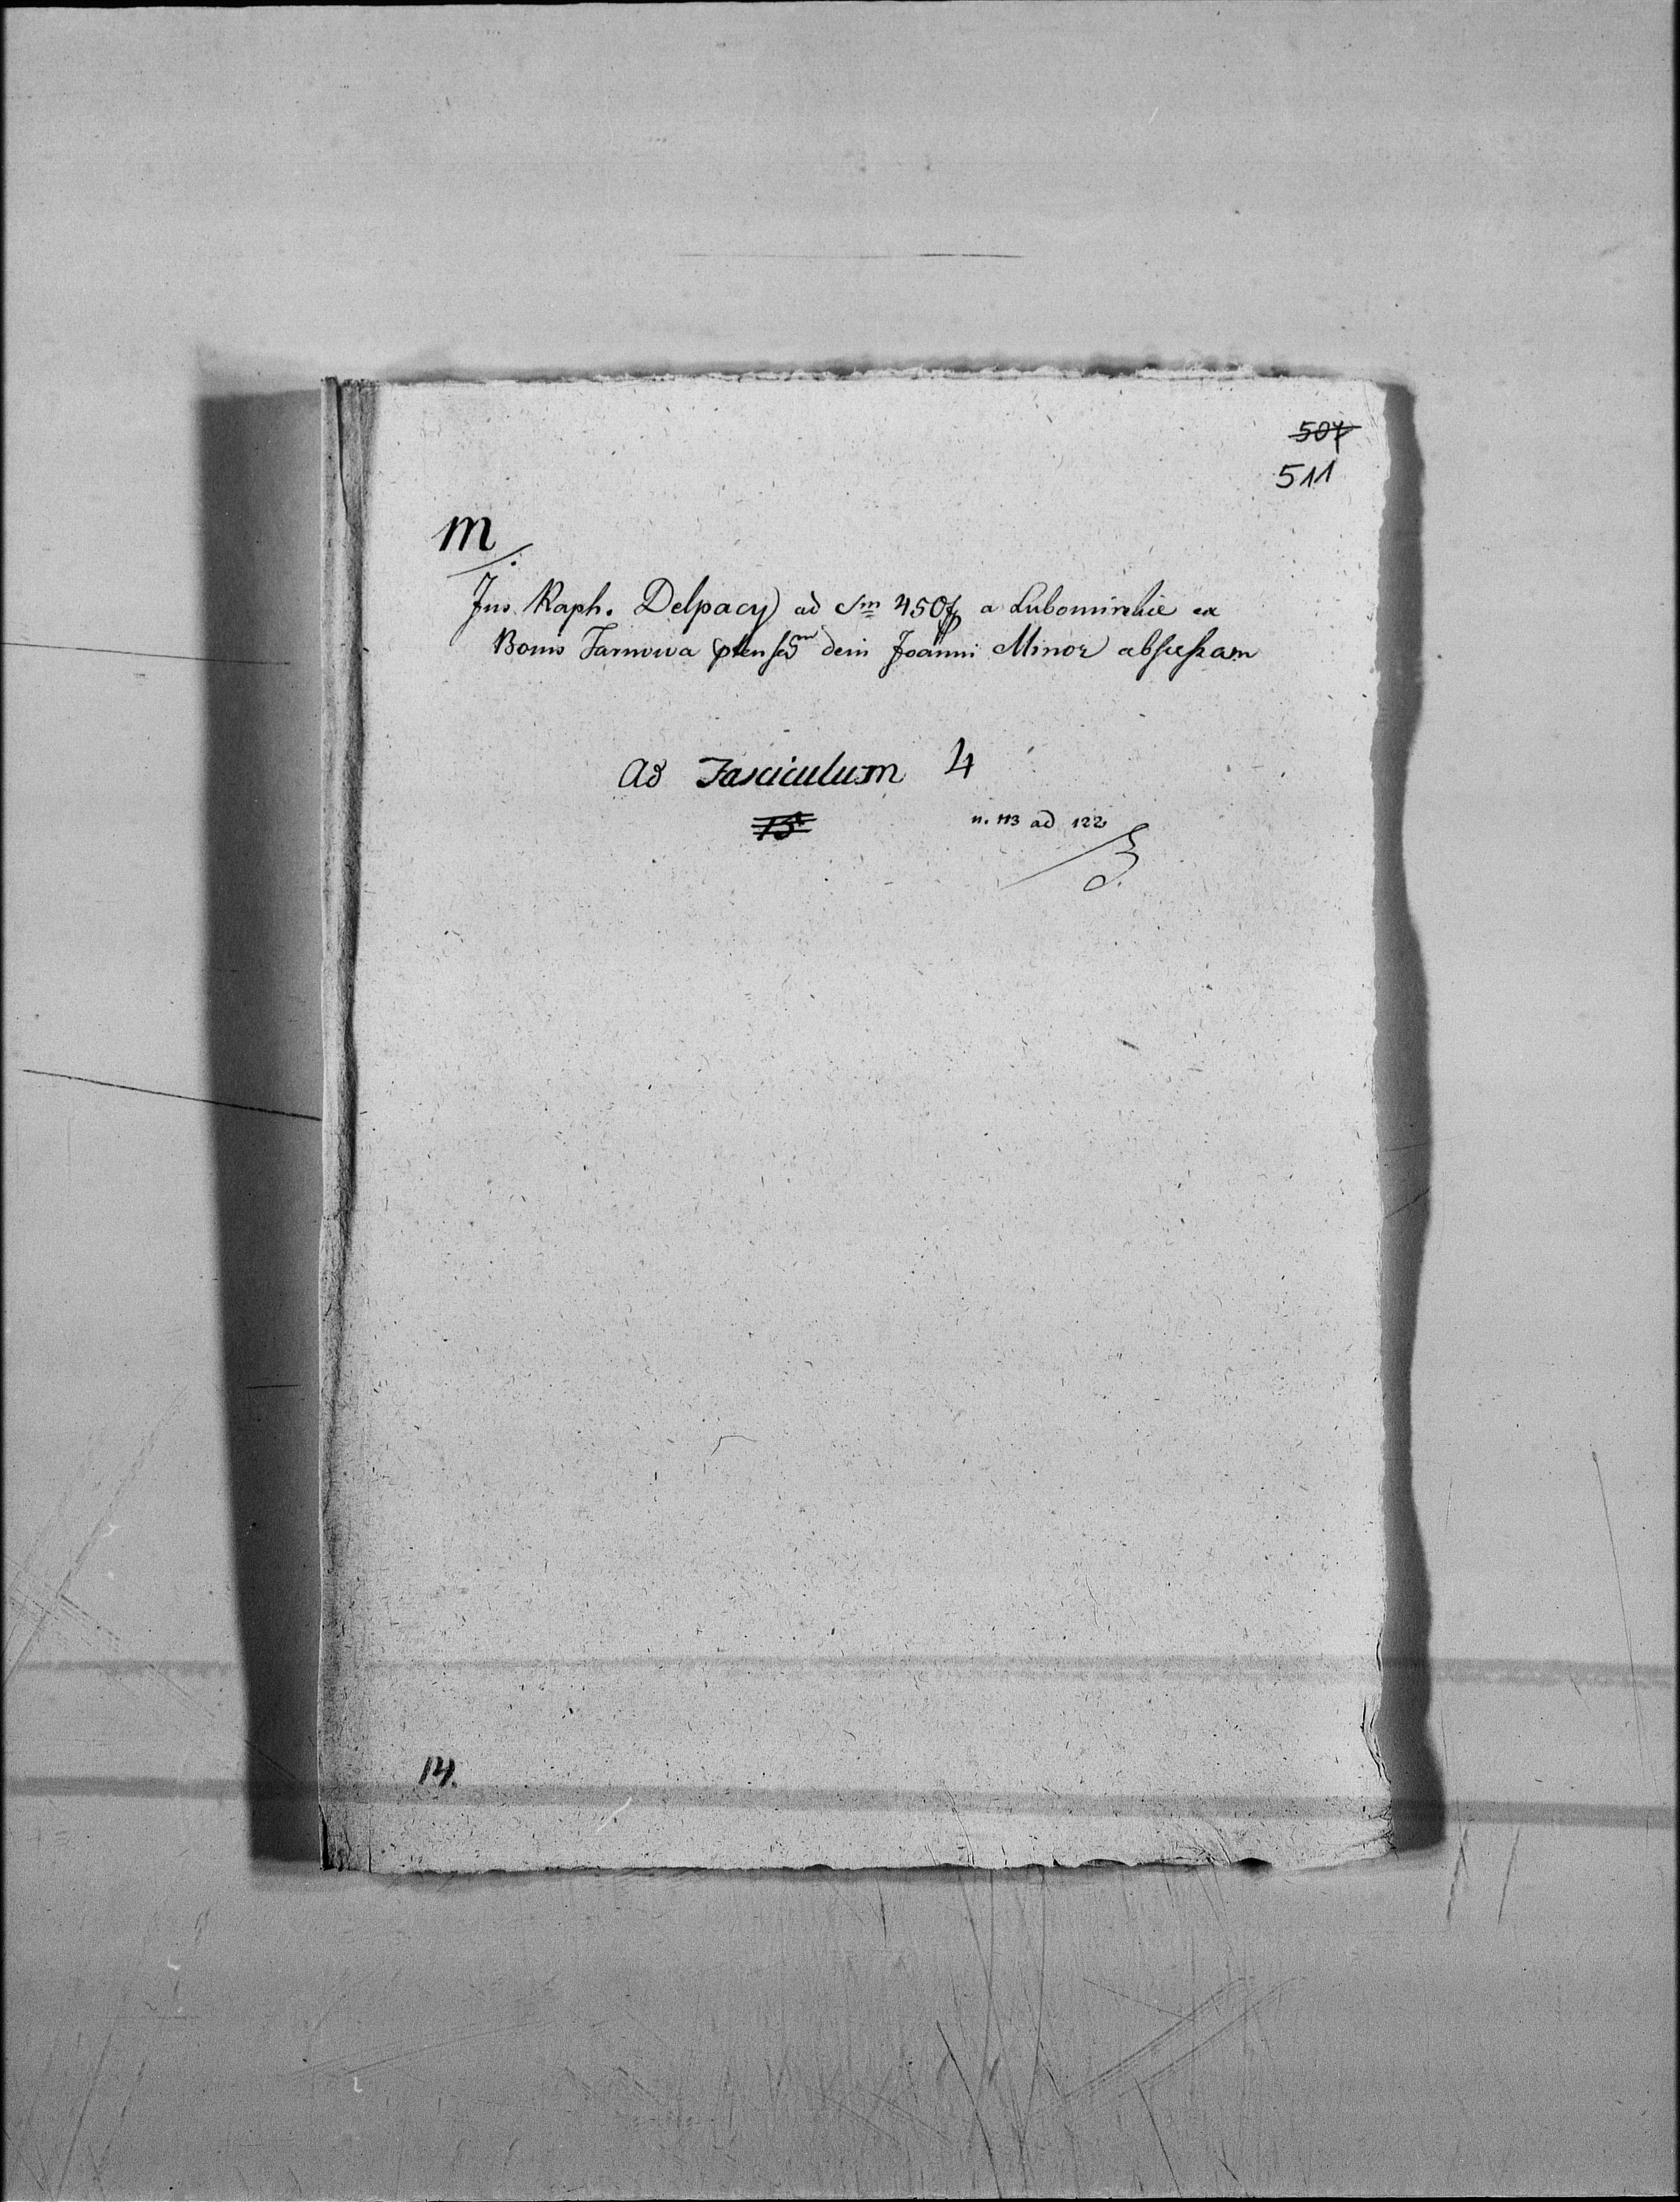 507
511
m/.
Jus Raph. Delpacy ad Sm 450 f a Lubomirskie ex
Bonis Tarnowa dein Joanni Minor
Ad Fasciculum 4
15
n. 113 ad 122
14.